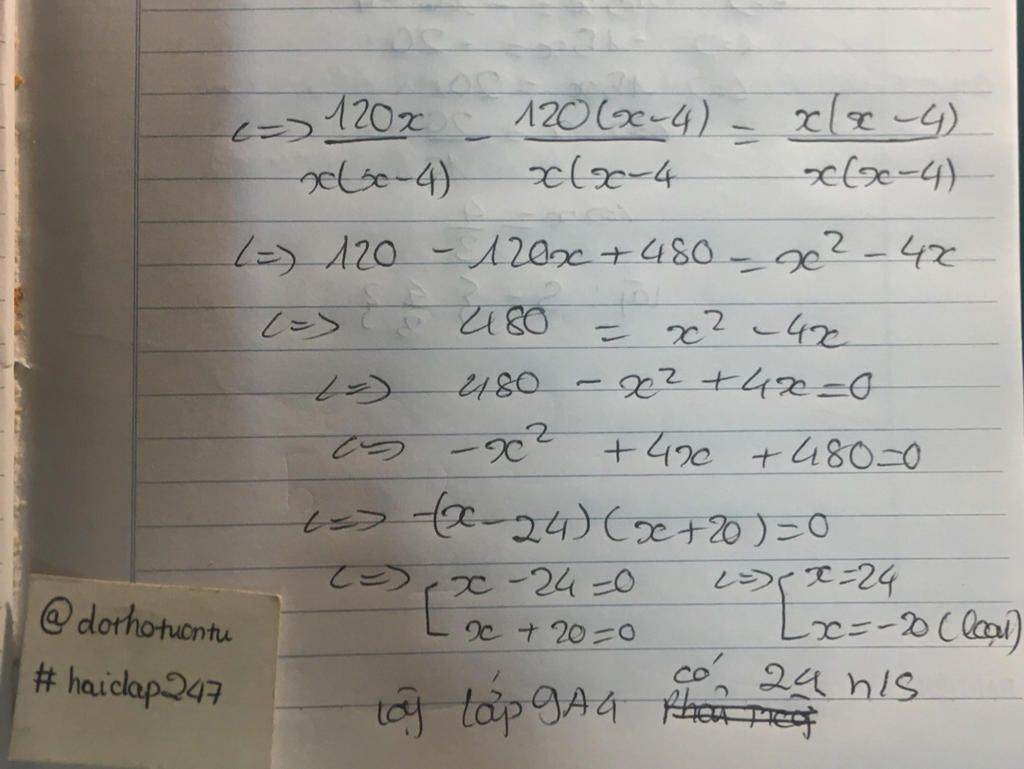 <=> 120x/x(x-4) - 120(x-4)/x(x-4 = x(x-4)/x(x-4)
<=> 120 - 120x + 480 = x² - 4x
<=> 480 = x² - 4x
<=> 480 - x² + 4x = 0
<=> -x² + 4x + 480 = 0
<=> -(x - 24)(x + 20) = 0
<=> [ x - 24 = 0 <=> [ x = 24
x + 20 = 0 x = -20 (loại)
Vậy lớp 9A4 có 24 h/s
@dorhotuontu
#haidap247